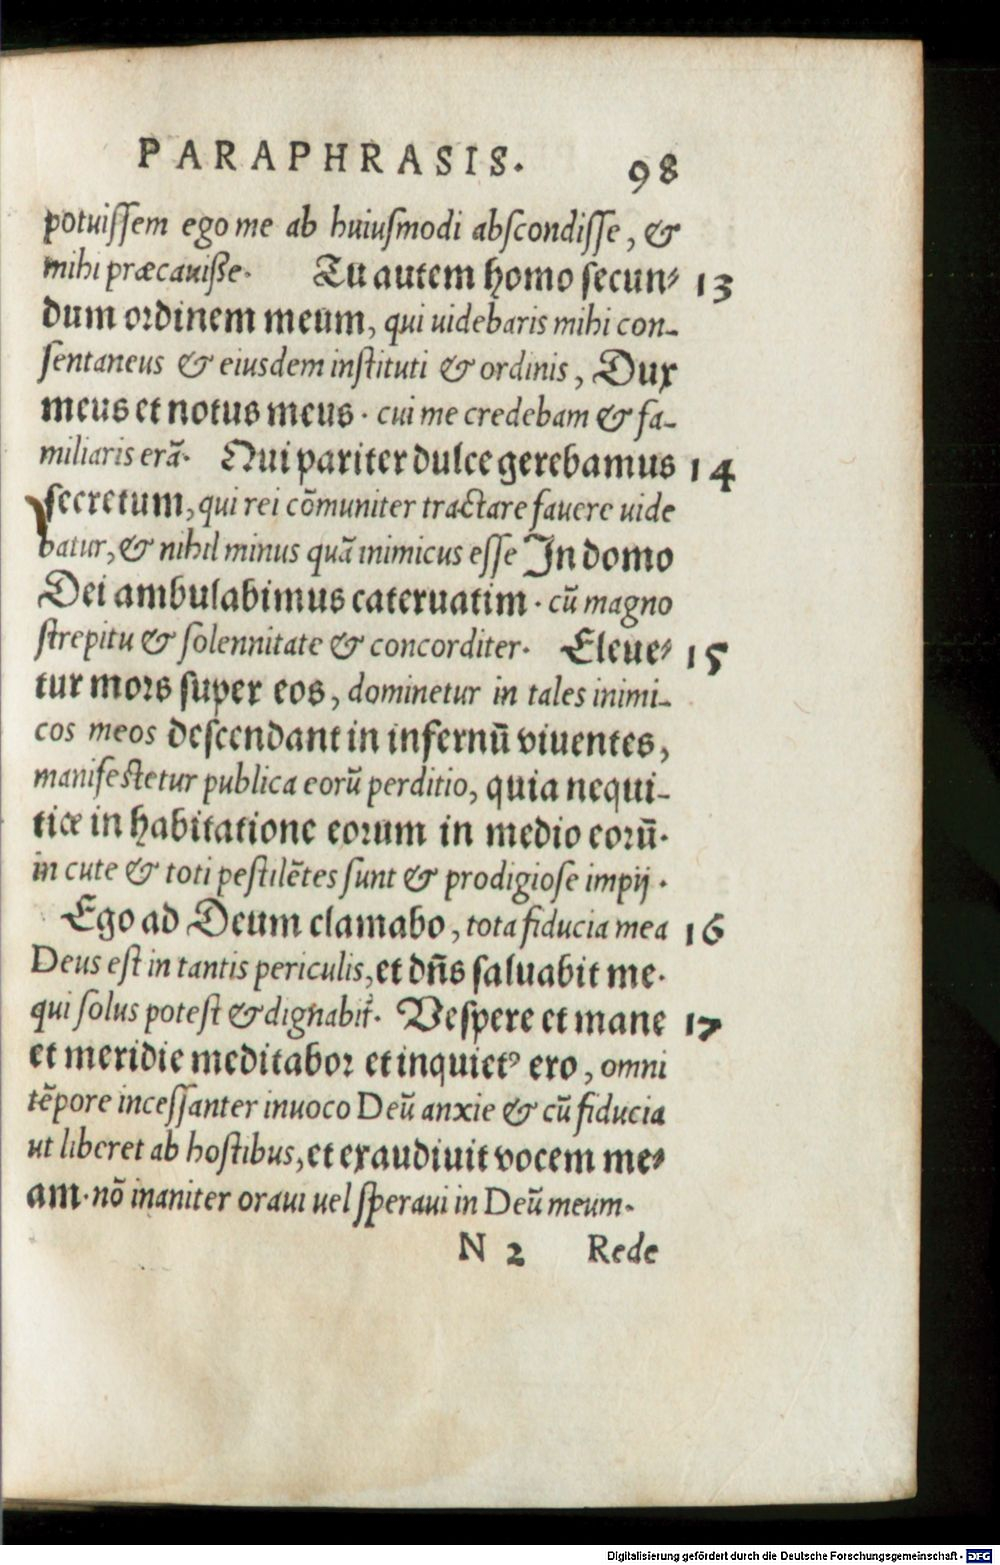 PARAPHRASIS. 98
potuissem ego me ab huiusmodi abscondisse, &
mihi præcauisse. Tu autem homo secun⸗ 13
dum ordinem meum, qui uidebaris mihi con-
sentaneus & eiusdem instituti & ordinis, Dux
meus et notus meus. cui me credebam & fa-
miliaris erā. Qui pariter dulce gerebamus 14
secretum, qui rei cōmuniter tractare fauere uide
batur, & nihil minus quā inimicus esse In domo
Dei ambulabimus cateruatim. cū magno
strepitu & solennitate & concorditer. Eleue⸗ 15
tur mors super eos, dominetur in tales inimi-
cos meos descendant in infernū viuentes,
manifestetur publica eorū perditio, quia nequi-
tiæ in habitatione eorum in medio eorū.
in cute & toti pestilētes sunt & prodigiose impij.
Ego ad Deum clamabo, tota fiducia mea 16
Deus est in tantis periculis, et dñs saluabit me.
qui solus potest & dignabit᷑. Vespere et mane 17
et meridie meditabor et inquietꝰ ero, omni
tēpore incessanter inuoco Deū anxie & cū fiducia
ut liberet ab hostibus, et exaudiuit vocem me⸗
am. nō inaniter oraui uel speraui in Deū meum.
N 2 Rede
Digitalisierung gefördert durch die Deutsche Forschungsgemeinschaft - DFG